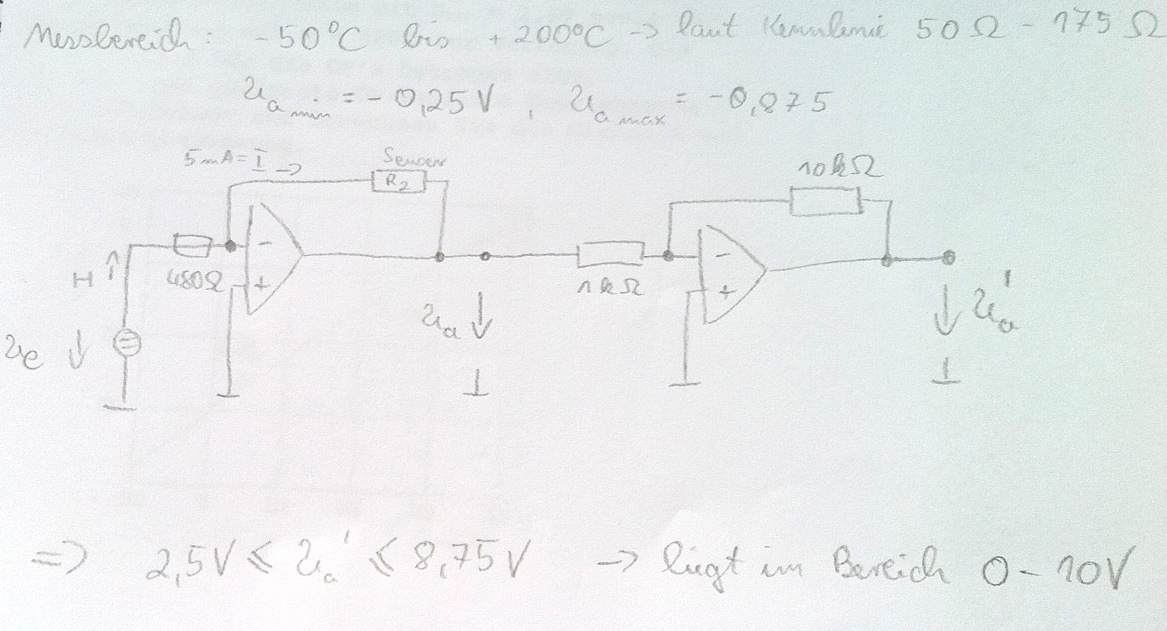 Messbereich: -50°C bis +200°C -> laut Kennlinie 50Ω - 175Ω
Ua min = -0,25V , Ua max = -0,875
5mA = I ->
Sensor
R2
10kΩ
-
+
480Ω
1kΩ
-
+
Ue
Ua
Ua'
=> 2,5V ≤ Ua' ≤ 8,75V -> liegt im Bereich 0-10V